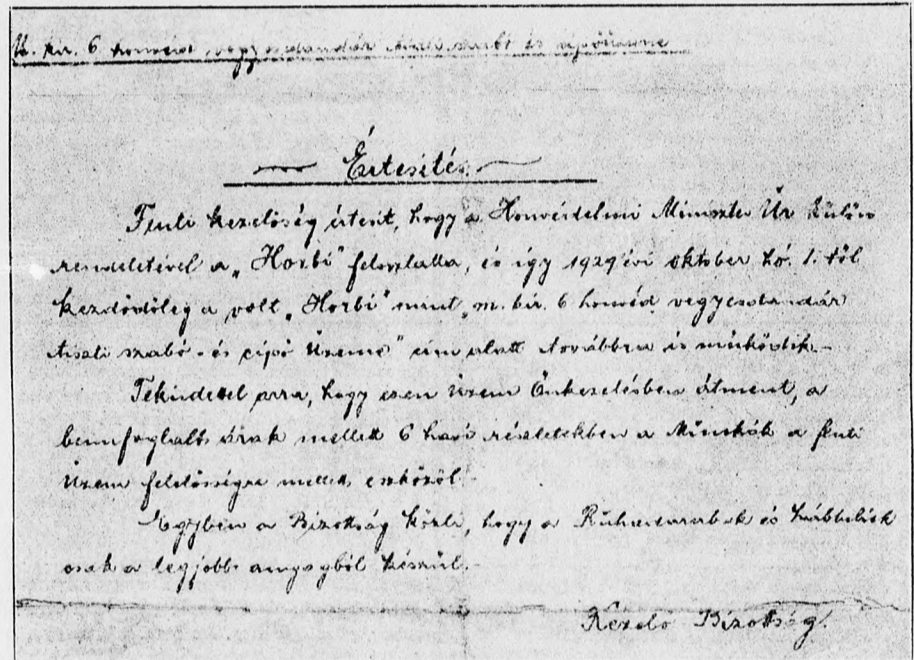 M. kir. 6 honvéd vegyesdandár tiszti szabó és cipőüzeme
Értesítés.
Fenti kezelőség értesít, hogy a Honvédelmi Miniszter Úr külön
rendeletével a „Horbi" feloszlatta, és így 1929 évi október hó. 1. től
kezdődőleg a volt „Horbi" mint „m. kir. 6 honvéd vegyesdandár
tiszti szabó - és cipő üzeme" cím alatt továbbra is működik.-
Tekintettel arra, hogy ezen üzem Önkezelésben átment, a
bennfoglalt árak mellett 6 havi részletekben a Munkák a fenti
üzem felelőssége mellett eszközöl.
Egyben a Bizottság közli, hogy a Ruhadarabok és lábbeliek
csak a legjobb anyagból készül.-
Kezelő Bizottság.